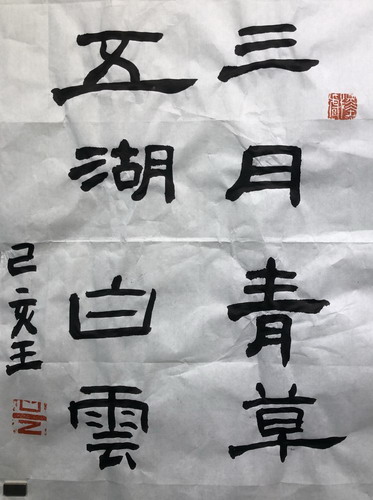 三月青草
五湖白雲
己亥王